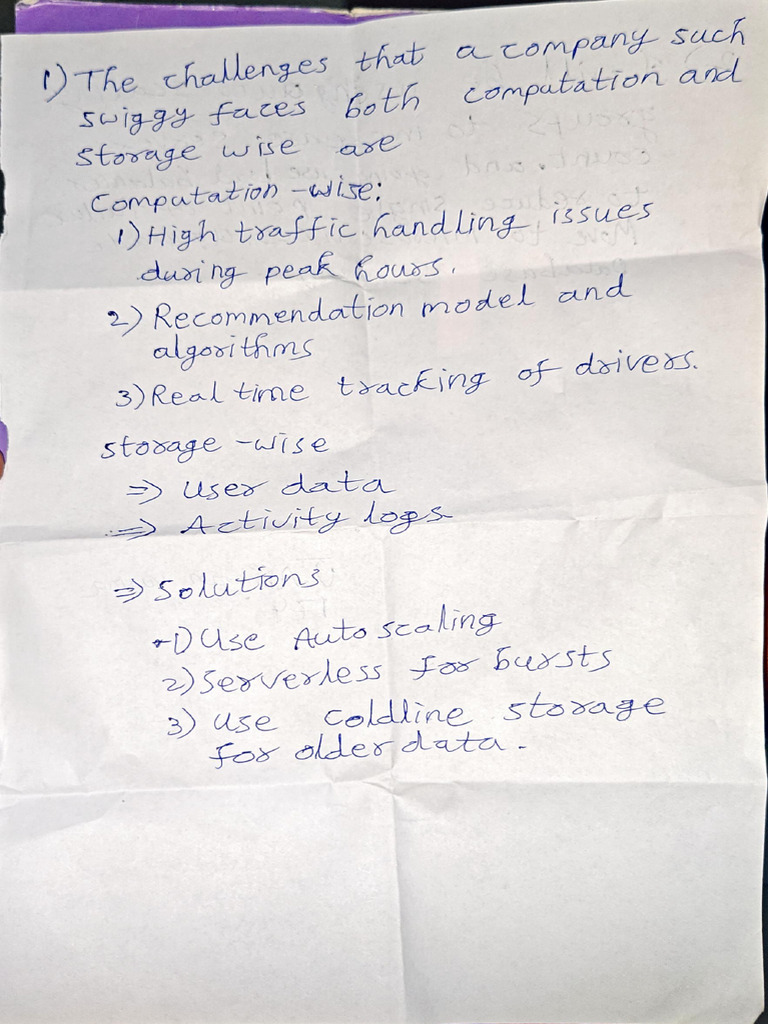 1) The challenges that a company such
swiggy faces both computation and
storage wise are
Computation-wise:
1) High traffic handling issues
during peak hours.
2) Recommendation model and
algorithms
3) Real time tracking of drivers.
storage-wise
⇒ User data
⇒ Activity logs
⇒ Solutions
1) Use Auto scaling
2) Serverless for bursts
3) use coldline storage
for older data.